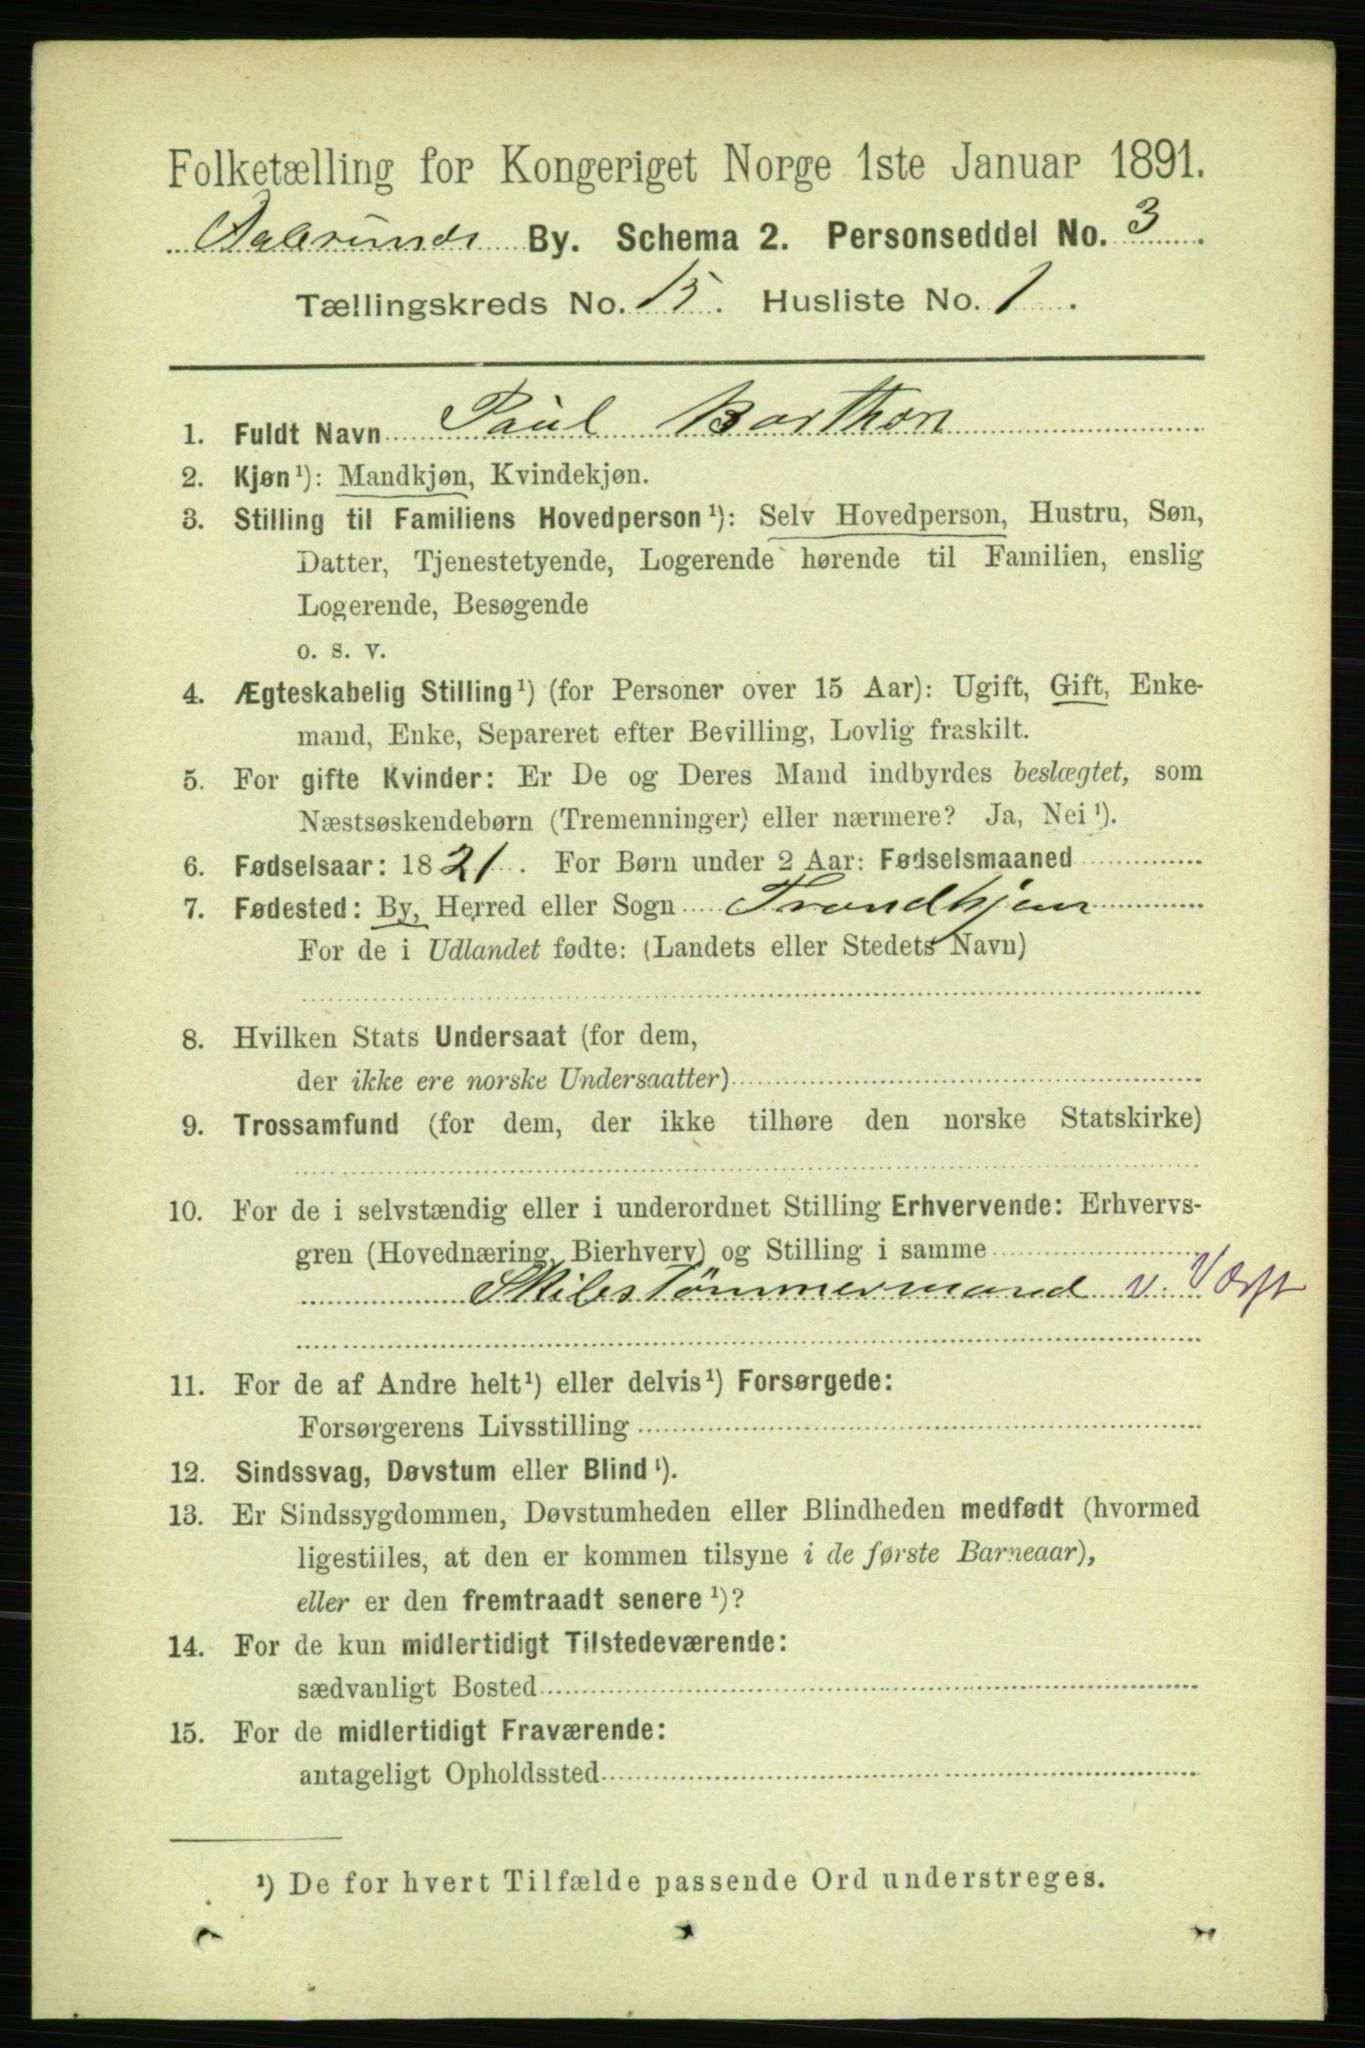 Folketælling for Kongeriget Norge 1ste Januar 1891.
Aalesunds By. Schema 2. Personseddel No. 3.
Tællingskreds No. 15. Husliste No. 1.
1. Fuldt Navn Paul Barthon
2. Kjøn¹): Mandkjøn, Kvindekjøn.
3. Stilling til Familiens Hovedperson¹): Selv Hovedperson, Hustru, Søn,
Datter, Tjenestetyende, Logerende hørende til Familien, enslig
Logerende, Besøgende
o. s. v.
4. Ægteskabelig Stilling¹) (for Personer over 15 Aar): Ugift, Gift, Enke-
mand, Enke, Separeret efter Bevilling, Lovlig fraskilt.
5. For gifte Kvinder: Er De og Deres Mand indbyrdes beslægtet, som
Næstsøskendebørn (Tremenninger) eller nærmere? Ja, Nei¹).
6. Fødselsaar: 1821. For Børn under 2 Aar: Fødselsmaaned
7. Fødested: By, Herred eller Sogn Trondhjem
For de i Udlandet fødte: (Landets eller Stedets Navn)
8. Hvilken Stats Undersaat (for dem,
der ikke ere norske Undersaatter)
9. Trossamfund (for dem, der ikke tilhøre den norske Statskirke)
10. For de i selvstændig eller i underordnet Stilling Erhvervende: Erhvervs-
gren (Hovednæring, Bierhverv) og Stilling i samme
Skibstömmermand v. Værft
11. For de af Andre helt¹) eller delvis¹) Forsørgede:
Forsørgerens Livsstilling
12. Sindssvag, Døvstum eller Blind¹).
13. Er Sindssygdommen, Døvstumheden eller Blindheden medfødt (hvormed
ligestilles, at den er kommen tilsyne i de første Barneaar),
eller er den fremtraadt senere¹)?
14. For de kun midlertidigt Tilstedeværende:
sædvanligt Bosted
15. For de midlertidigt Fraværende:
antageligt Opholdssted
¹) De for hvert Tilfælde passende Ord understreges.